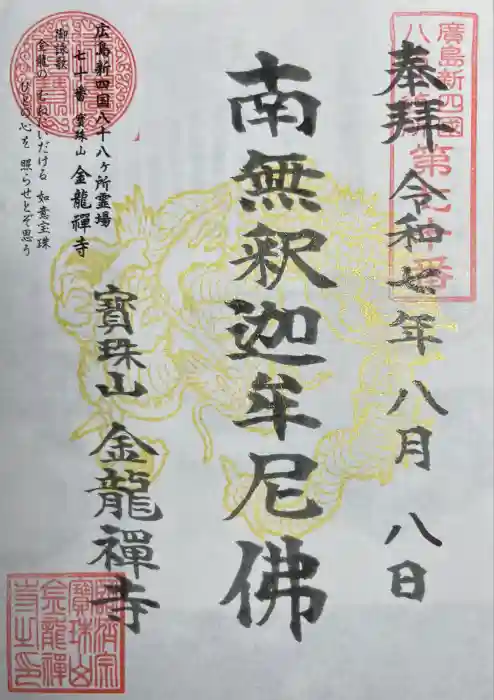 奉拝 令和七年 八月 八日
廣島新四国
第七十番
南無釈迦牟尼佛
広島新四国八十八ヶ所霊場
七十番 寳珠山 金龍禅寺
御詠歌
金龍の
如意宝珠
ひとの心を 照らせとぞ思う
寳珠山 金龍禪寺
寳珠山
金龍禪
寺之印